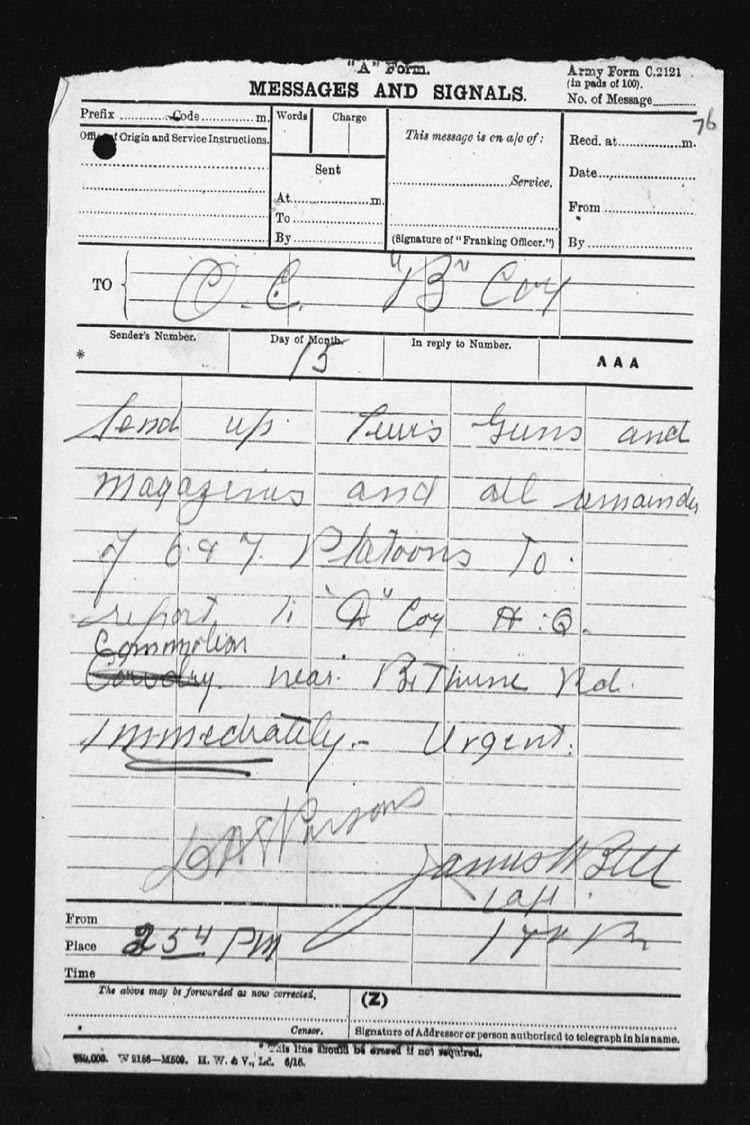 "A" Form.
Army Form C.2121
MESSAGES AND SIGNALS.
(in pads of 100).
No. of Message
76
Prefix Code m.
Words Charge
This message is on a/c of:
Recd. at m.
Office of Origin and Service Instructions.
Sent
Service.
Date
At m.
From
To
By
(Signature of "Franking Officer.")
By
TO O.C. "B" Coy
Sender's Number.
Day of Month.
In reply to Number.
* 15
AAA
Send up Lewis Guns and
magazines and all remainder
of 6 & 7 Platoons To
report to "A" Coy H.Q.
near Bethune Rd.
Immediately. - Urgent.
Parsons
James W Bell
Capt
From
Place 2 54 PM
Time
The above may be forwarded as now corrected.
(Z)
Censor.
Signature of Addressor or person authorised to telegraph in his name.
* This line should be erased if not required.
W 2186—M509. H. W. & V., Ld. 6/16.